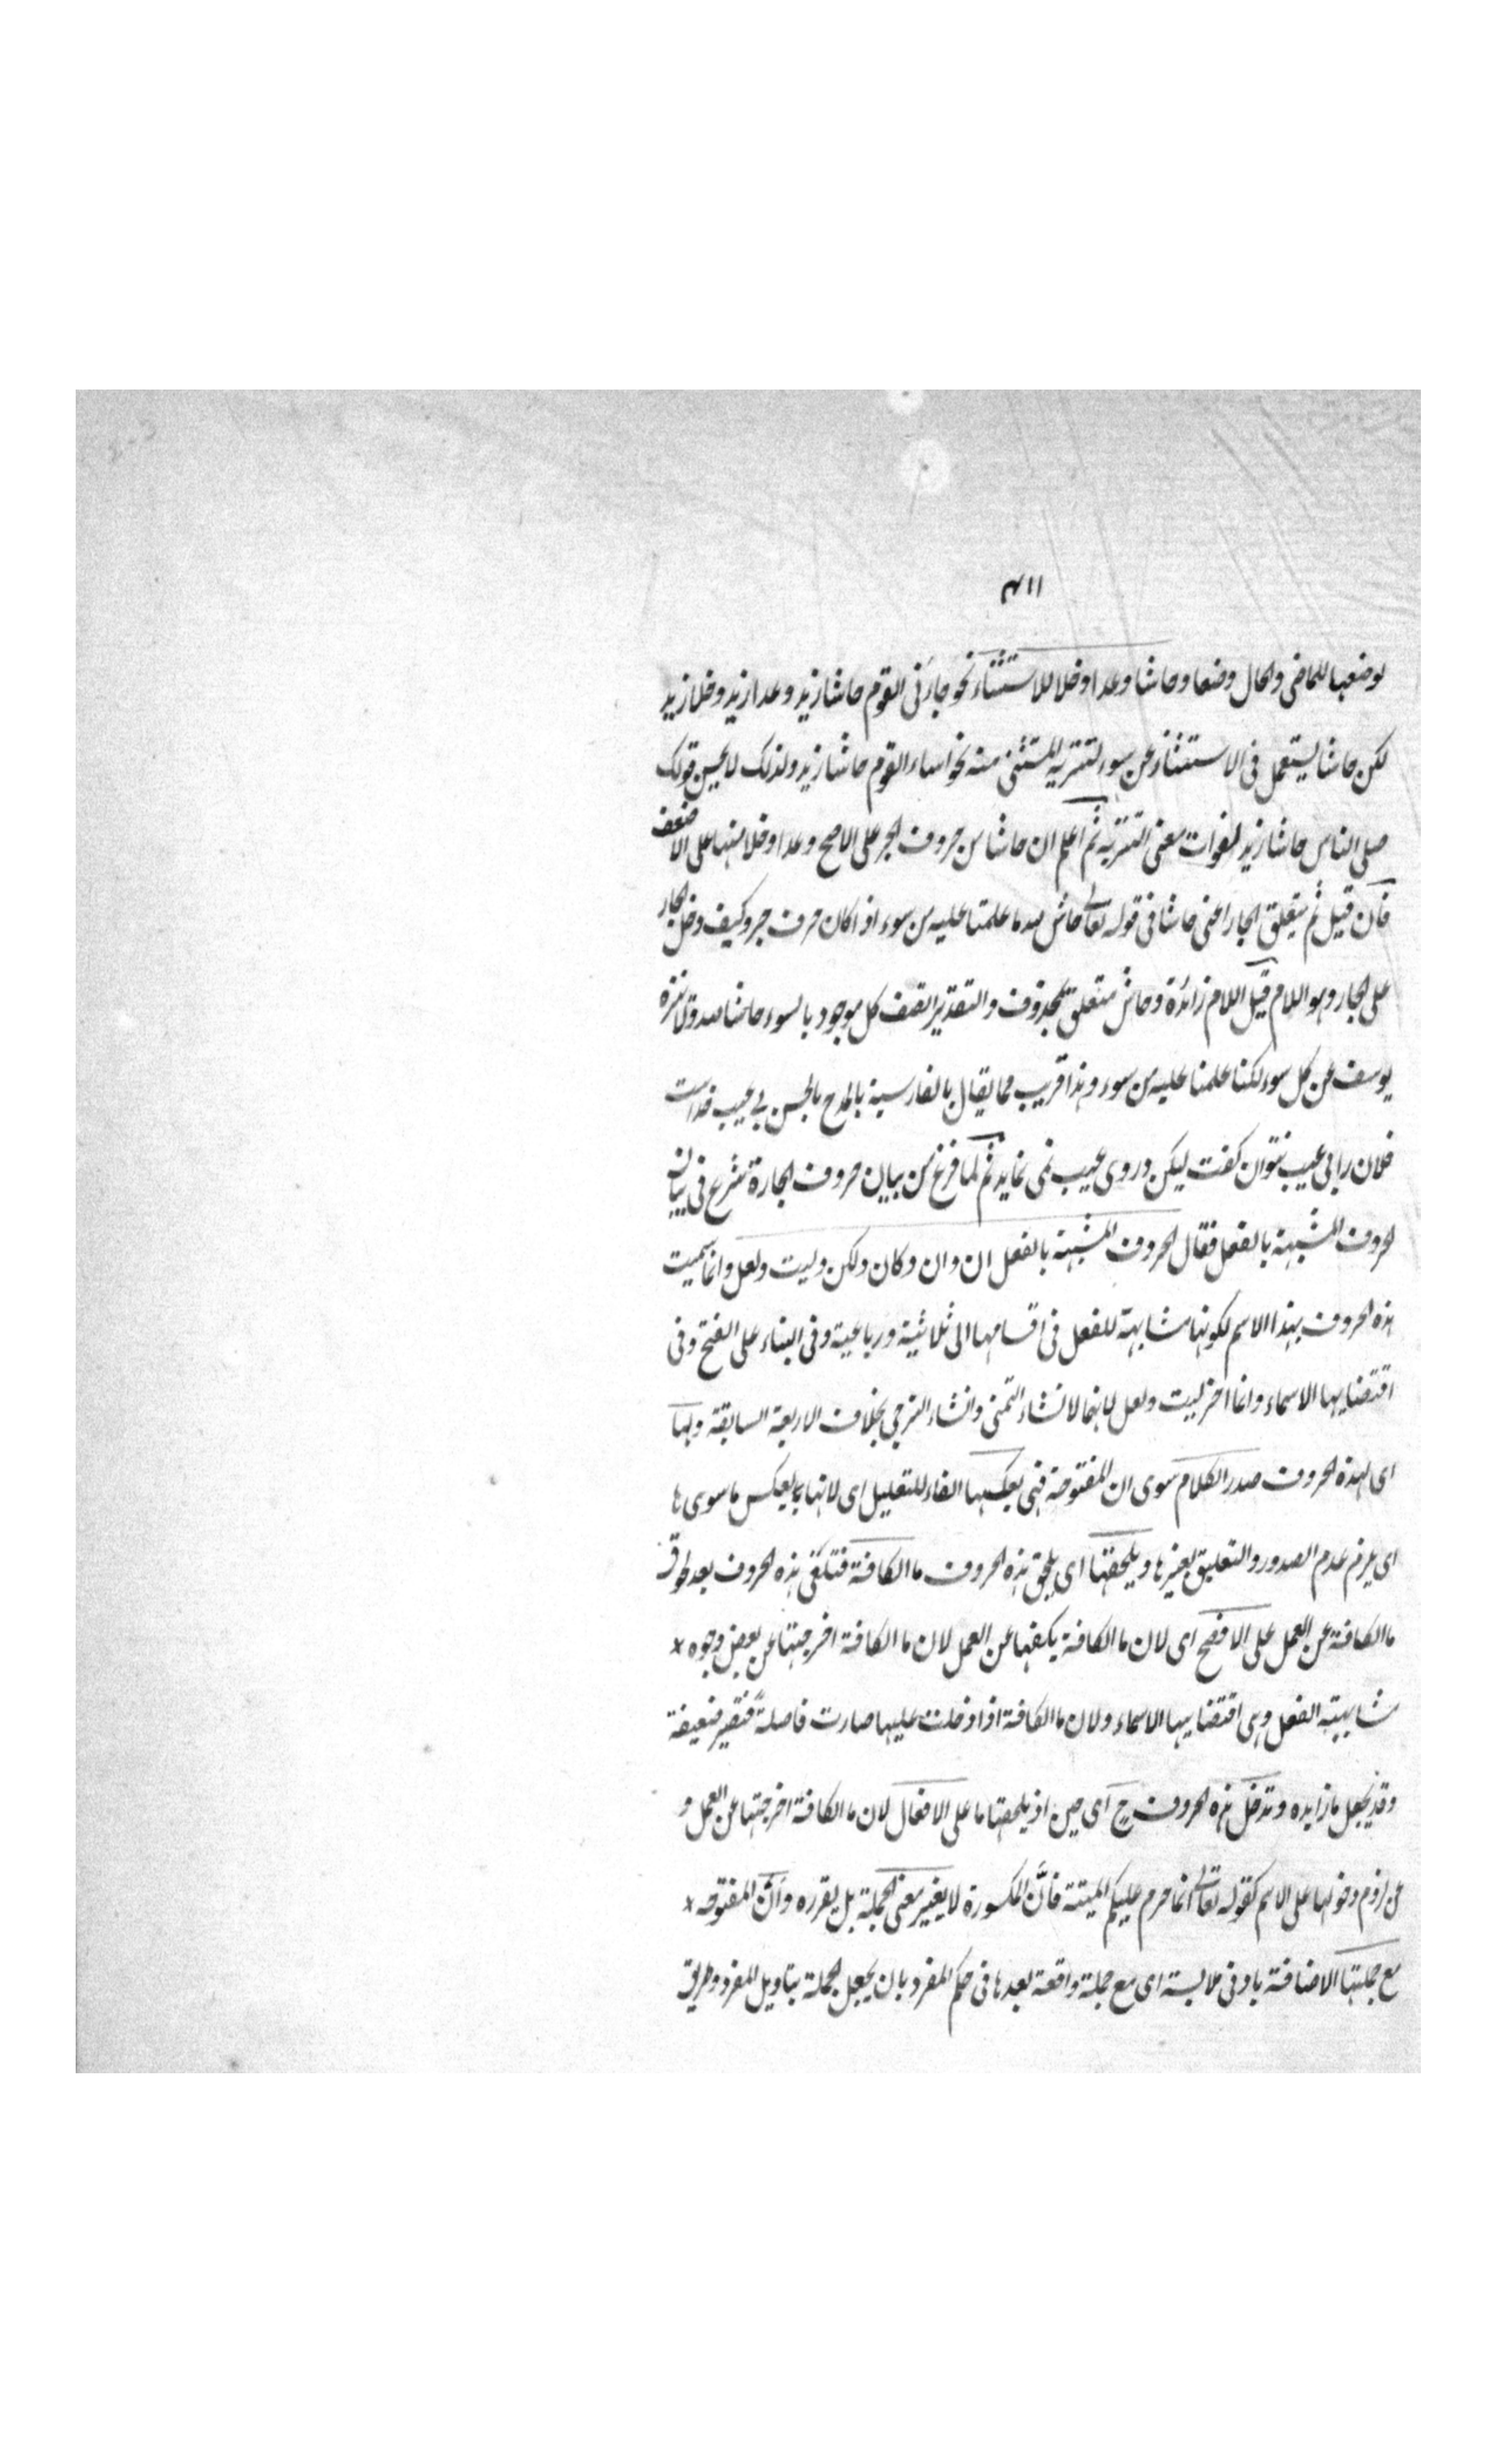 ۱۱۴
لوضعها للماضی والحال وضعا وحاشا وعدا وخلا للاستثناء نحو جاءنی القوم حاشا زید وعدا زید وخلا زید
لکن حاشا یستعمل فی الاستثناء عن سوء لتنزیه المستثنی منه نحو اساء القوم حاشا زید ولذلک لا یحسن قولک
صلی الناس حاشا زید لفوات معنی التنزیه ثم اعلم ان حاشا من حروف الجر علی الاصح وعدا وخلا منها علی الاضعف
فان قیل ثم یتعلق الجار اعنی حاشا فی قوله تعالی حاش لله ما علمنا علیه من سوء اذا کان حرف جر وکیف دخل الجار
علی الجار وهو اللام قیل اللام زائدة وحاش متعلق بمحذوف والتقدیر اتصف کل موجود بالسوء حاشا لله ولا ننزه
یوسف عن کل سوء لکنا علمنا علیه من سوء وهذا قریب مما یقال بالفارسیة بالمدح بالحسن بی عیب خداست
فلان را بی عیب نتوان کفت لیکن در وی عیب نمی نماید ثم لما فرغ من بیان حروف الجارة شرع فی بیان
الحروف المشبهة بالفعل فقال الحروف المشبهة بالفعل ان وان وکان ولکن ولیت ولعل وانما سمیت
هذه الحروف بهذا الاسم لکونها مشابهة للفعل فی اقسامها الی ثلاثیة ورباعیة وفی البناء علی الفتح وفی
اقتضایها الاسماء وانما اخر لیت ولعل لانهما لانشاء التمنی وانشاء الترجی بخلاف الاربعة السابقة ولها
ای لهذه الحروف صدر الکلام سوی ان المفتوحة فهی بعکسها الفاء للتعلیل ای لانها بعکس ما سوی ها
ای یلزم عدم الصدور والتعلیق بغیرها ویلحقها ای یلحق هذه الحروف ما الکافة فتلغی هذه الحروف بعد لحوق
ما الکافة عن العمل علی الافصح ای لان ما الکافة یکفها عن العمل لان ما الکافة اخرجتها عن بعض وجوه
مشابهته الفعل وهی اقتضایها الاسماء ولان ما الکافة اذا دخلت علیها صارت فاصلةً فتصیر ضعیفة
وقد یجعل ما زایده وتدخل هذه الحروف ح ای حین اذ یلحقها ما علی الافعال لان ما الکافة اخرجتها عن العمل و
عن لزوم دخولها علی الاسم کقوله تعالی انما حرم علیکم المیتة فانّ المکسورة لا یغیر معنی الجملة بل یقرره وانّ المفتوحه
مع جملتها الاضافة بادنی ملابسة ای مع جملة واقعة بعدها فی حکم المفرد بان یجعل الجملة بتاویل المفرد وطریق